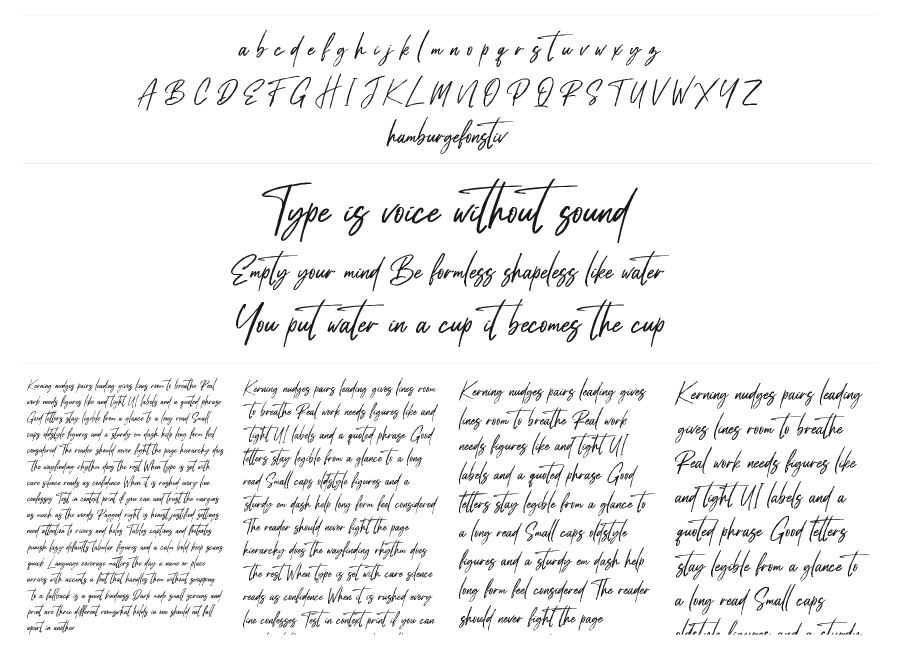 a b c d e f g h i j k l m n o p q r s t u v w x y z
A B C D E F G H I J K L M N O P Q R S T U V W X Y Z
hamburgefonstiv
Type is voice without sound
Empty your mind Be formless shapeless like water
You put water in a cup it becomes the cup
Kerning nudges pairs leading gives lines room to breathe Real
work needs figures like and tight UI labels and a quoted phrase
Good letters stay legible from a glance to a long read Small
caps oldstyle figures and a sturdy em dash help long form feel
considered The reader should never fight the page hierarchy does
the wayfinding rhythm does the rest When type is set with
care silence reads as confidence When it is rushed every line
confesses Test in context print if you can and trust the margins
as much as the words Ragged right is honest justified settings
need attention to rivers and holes Tables captions and footnotes
punish lazy defaults tabular figures and a calm bold keep scans
quick Language coverage matters the day a name or place
arrives with accents a font that handles them without swapping
to a fallback is a quiet kindness Dark mode small screens and
print are three different rooms what holds in one should not fall
apart in another
Kerning nudges pairs leading gives lines room
to breathe Real work needs figures like and
tight UI labels and a quoted phrase Good
letters stay legible from a glance to a long
read Small caps oldstyle figures and a
sturdy em dash help long form feel considered
The reader should never fight the page
hierarchy does the wayfinding rhythm does
the rest When type is set with care silence
reads as confidence When it is rushed every
line confesses Test in context print if you can
Kerning nudges pairs leading gives
lines room to breathe Real work
needs figures like and tight UI
labels and a quoted phrase Good
letters stay legible from a glance to
a long read Small caps oldstyle
figures and a sturdy em dash help
long form feel considered The reader
should never fight the page
Kerning nudges pairs leading
gives lines room to breathe
Real work needs figures like
and tight UI labels and a
quoted phrase Good letters
stay legible from a glance to
a long read Small caps
oldstyle figures and a sturdy